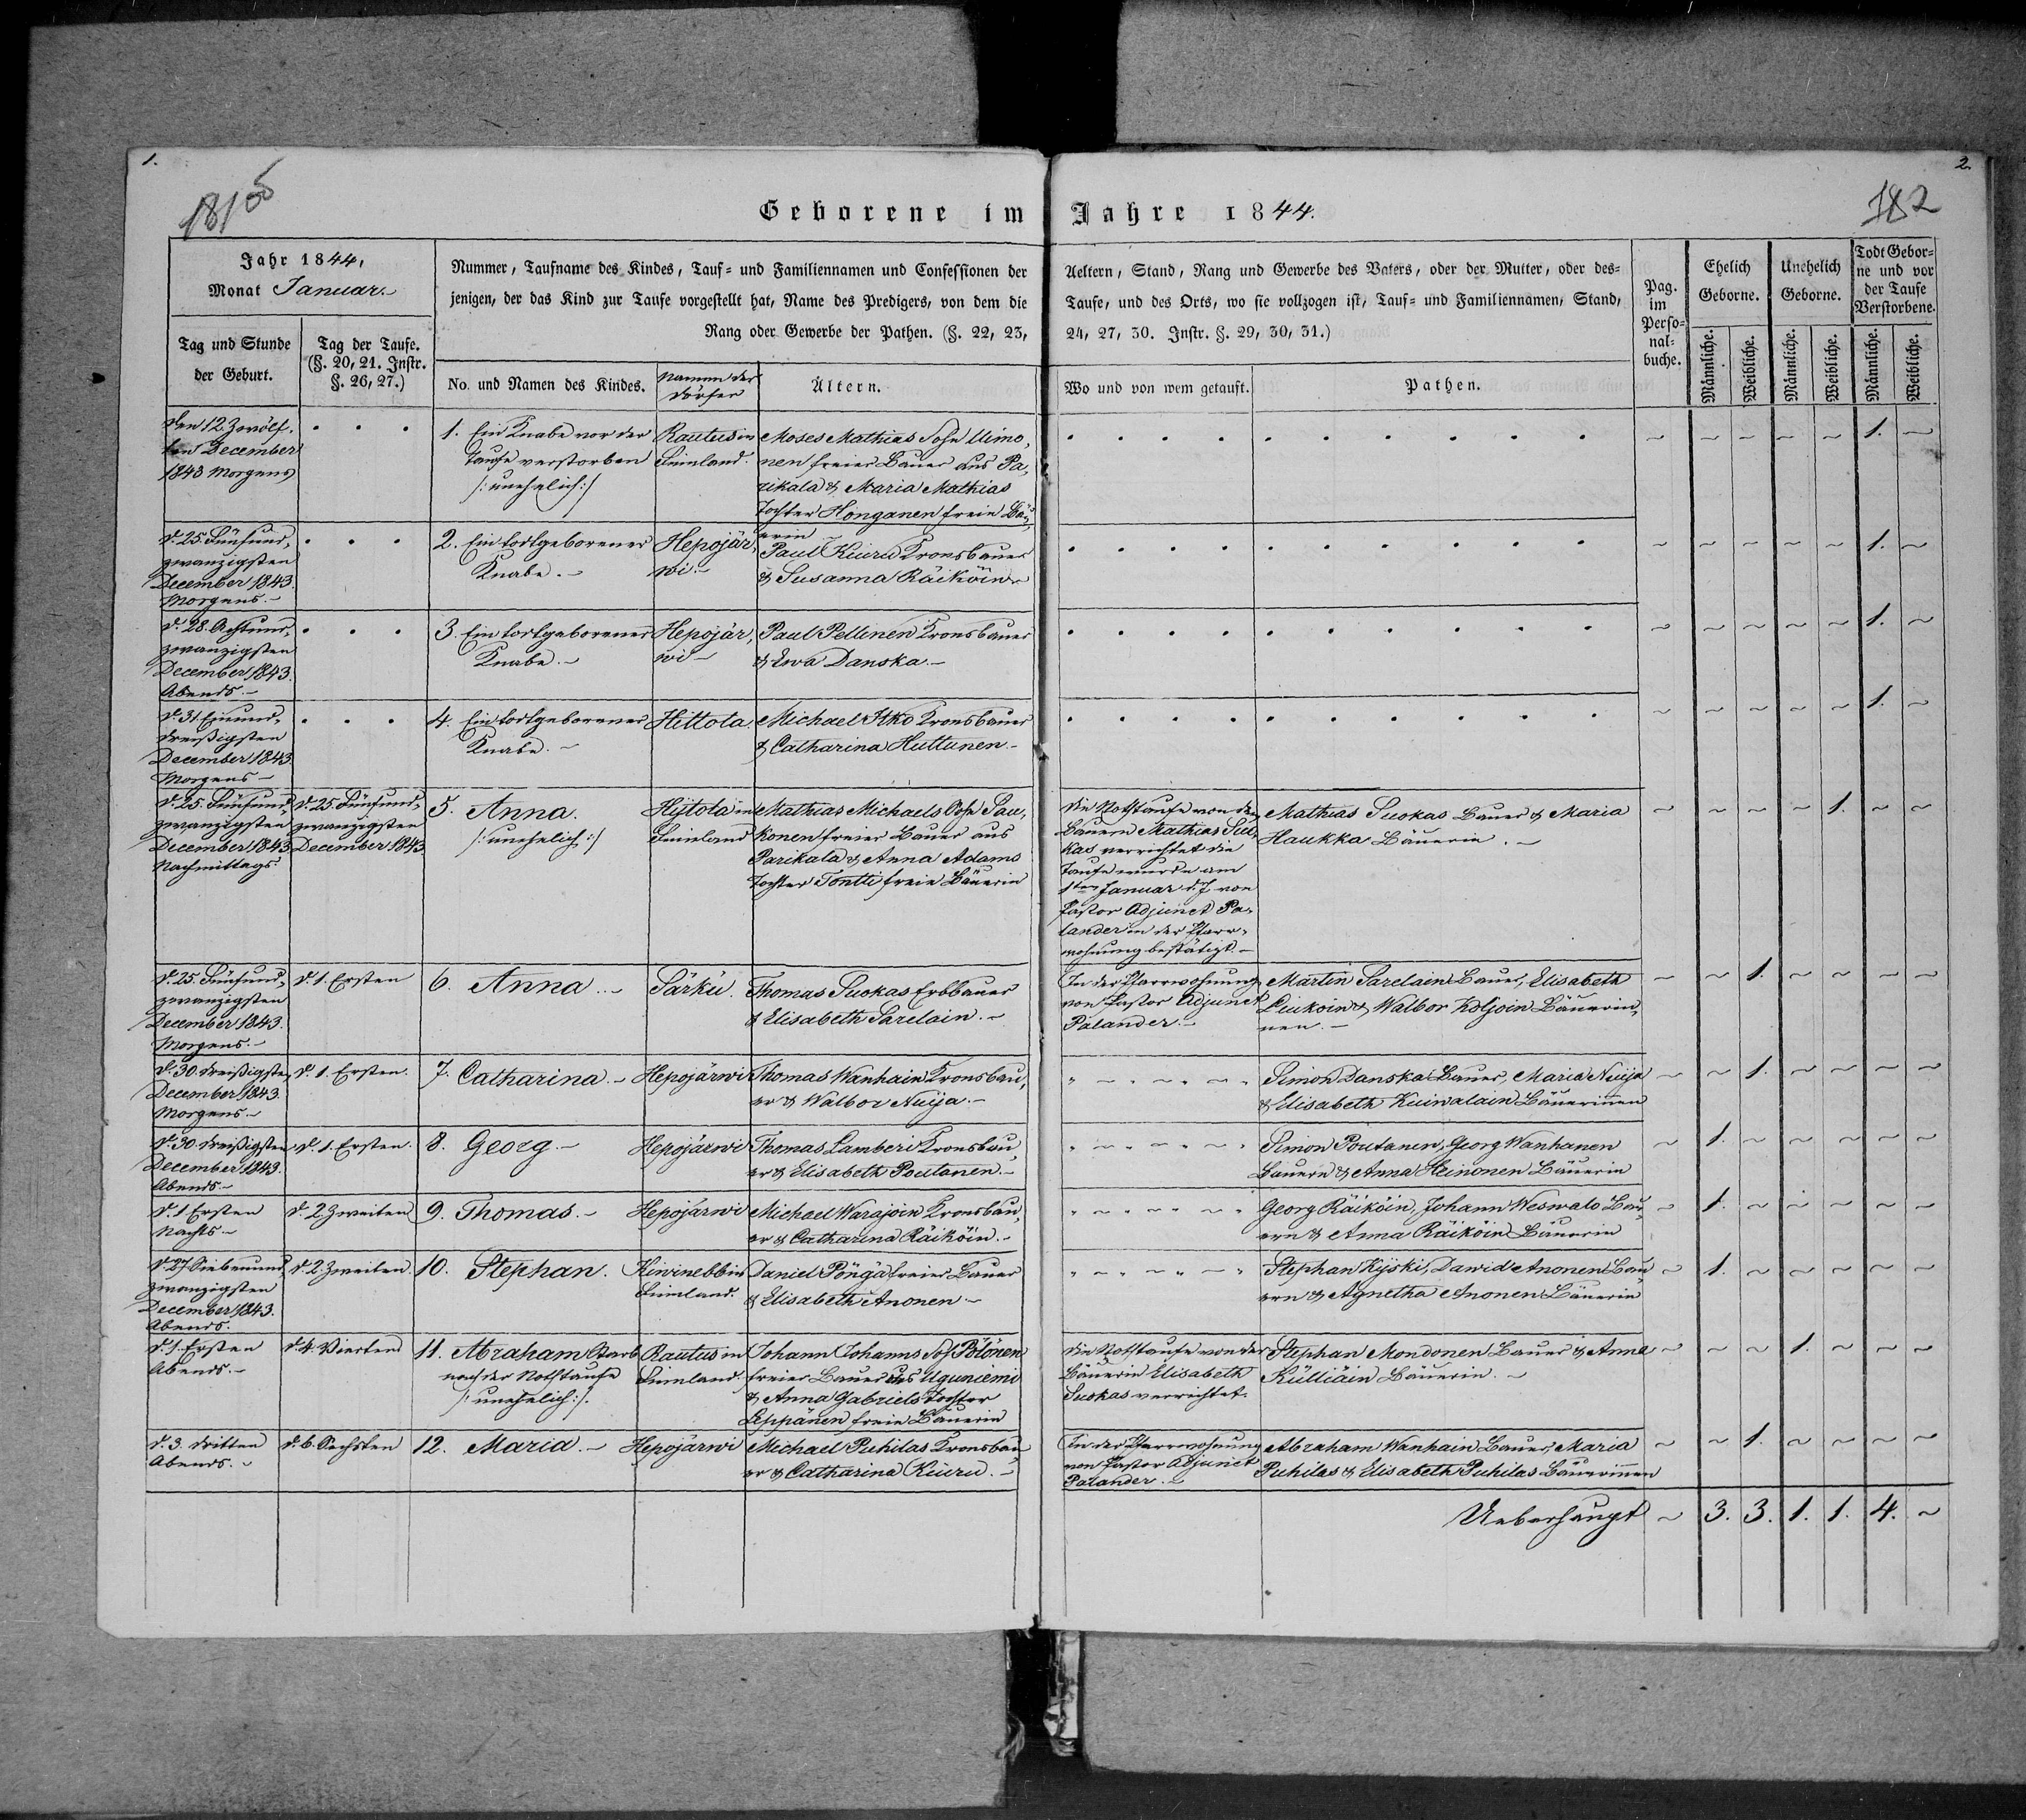 1.
2.
181
182
Geborene im Jahre 1844.
Jahr 1844,
Monat Januar.
Tag und Stunde
der Geburt.
Tag der Taufe.
(§. 20, 21. Instr.
§. 26, 27.)
Nummer, Taufname des Kindes, Tauf= und Familiennamen und Confessionen der Aeltern, Stand, Rang und Gewerbe des Vaters, oder der Mutter, oder des=
jenigen, der das Kind zur Taufe vorgestellt hat, Name des Predigers, von dem die Taufe, und des Orts, wo sie vollzogen ist, Tauf= und Familiennamen, Stand,
Rang oder Gewerbe der Pathen. (§. 22, 23, 24, 27, 30. Instr. §. 29, 30, 31.)
No. und Namen des Kindes.
Namen der
Dörfer
Ältern.
Wo und von wem getauft.
Pathen.
Pag.
im
Perso=
nal=
buche.
Ehelich
Geborne.
Unehelich
Geborne.
Todt Gebor=
ne und vor
der Taufe
Verstorbene.
Männliche.
Weibliche.
Männliche.
Weibliche.
Männliche.
Weibliche.
den 12 Zwölf,
ten December
1843 Morgens
1. Ein Knabe vor der
Taufe verstorben
/: unehelich :/
Rautus in
Finnland.
Moses Mathias Sohn Uimo,
nen freier Bauer aus Pa,
rikala & Maria Mathias
Tochter Honganen freie Bäu,
erin
1.
d. 25. Fünfund,
zwanzigsten
December 1843.
Morgens.
2. Ein todtgeborener
Knabe.
Hepojär,
wi.
Paul Kiuru Kronsbauer
& Susanna Räiköin
1.
d. 28. Achtund,
zwanzigsten
December 1843.
Abends.
3. Ein todtgeborener
Knabe.
Hepojär,
wi
Paul Pellinen Kronsbauer
& Ewa Danska.
1.
d. 31 Einund,
dreißigsten
December 1843
Morgens
4. Ein todtgeborener
Knabe.
Hittola
Michael Itko Kronsbauer
& Catharina Huttunen.
1.
d. 25. Fünfund,
zwanzigsten
December 1843
Nachmittags
d. 25. Fünfund,
zwanzigsten
December 1843
5. Anna.
/: unehelich :/
Hijtola in
Finnland
Mathias Michaels Sohn Pau,
konen freier Bauer aus
Parikala & Anna Adams
Tochter Tontti freie Bäuerin
Die Nothtaufe von dem
Bauern Mathias Suo,
kas verrichtet die
Taufe wurde am
1ten Januar d. J. von
Pastor Adjunct Pa,
lander in der Pfarr,
wohnung bestätigt.
Mathias Suokas Bauer & Maria
Haukka Bäuerin.
1.
d. 25. Fünfund,
zwanzigsten
December 1843.
Morgens.
d. 1. Ersten
6. Anna.
Särkü.
Thomas Suokas Erbbauer
& Elisabeth Sarelain.
In der Pfarrwohnung
von Pastor Adjunct
Palander.
Martin Sarelain Bauer, Elisabeth
Liukoin & Walbor Koljoin Bäuerin,
nen.
1.
d. 30. dreißigsten
December 1843.
Morgens
d. 1. Ersten.
7. Catharina.
Hepojärwi
Thomas Wanhain Kronsbau,
er & Walbor Nuija.
Simon Danska Bauer, Maria Nuija
& Elisabeth Kuiwalain Bäuerinnen
1.
d. 30. dreißigsten
December 1843.
Abends
d. 1. Ersten.
8. Georg.
Hepojärwi
Thomas Lamberi Kronsbau,
er & Elisabeth Poutanen.
Simon Poutanen, Georg Wanhanen
Bauern & Anna Heinonen Bäuerin
1.
d. 1. Ersten
Nachts
d. 2 Zweiten
9. Thomas.
Hepojärwi
Michael Warajoin Kronsbau,
er & Catharina Räiköin.
Georg Räiköin, Johann Weswalo Bau,
ern & Anna Räiköin Bäuerin
1.
d. 27 Siebenund,
zwanzigsten
December 1843.
Abends.
d. 2 Zweiten
10. Stephan.
Kiwinebb in
Finnland.
Daniel Pöngä freier Bauer
& Elisabeth Anonen
Stephan Kijski, Dawid Anonen Bau,
ern & Agnetha Anonen Bäuerin
1.
d. 1. Ersten
Abends.
d. 4. Vierten
11. Abraham Starb
nach der Nothtaufe
/: unehelich :/.
Rautus in
Finnland
Johann Johanns Sohn Pölönen
freier Bauer aus Uguniemi
& Anna Gabriels Tochter
Leppänen freie Bäuerin
Die Nothtaufe von der
Bäuerin Elisabeth
Suokas verrichtet.
Stephan Mondonen Bauer & Anna
Külliäin Bäuerin.
1.
d. 3. dritten
Abends.
d. 6. Sechsten
12. Maria.
Hepojärwi
Michael Puhilas Kronsbau,
er & Catharina Kiuru.
In der Pfarrwohnung
von Pastor Adjunct
Palander.
Abraham Wanhain Bauer, Maria
Puhilas & Elisabeth Puhilas Bäuerinnen
1.
Ueberhaupt 3. 3. 1. 1. 4.